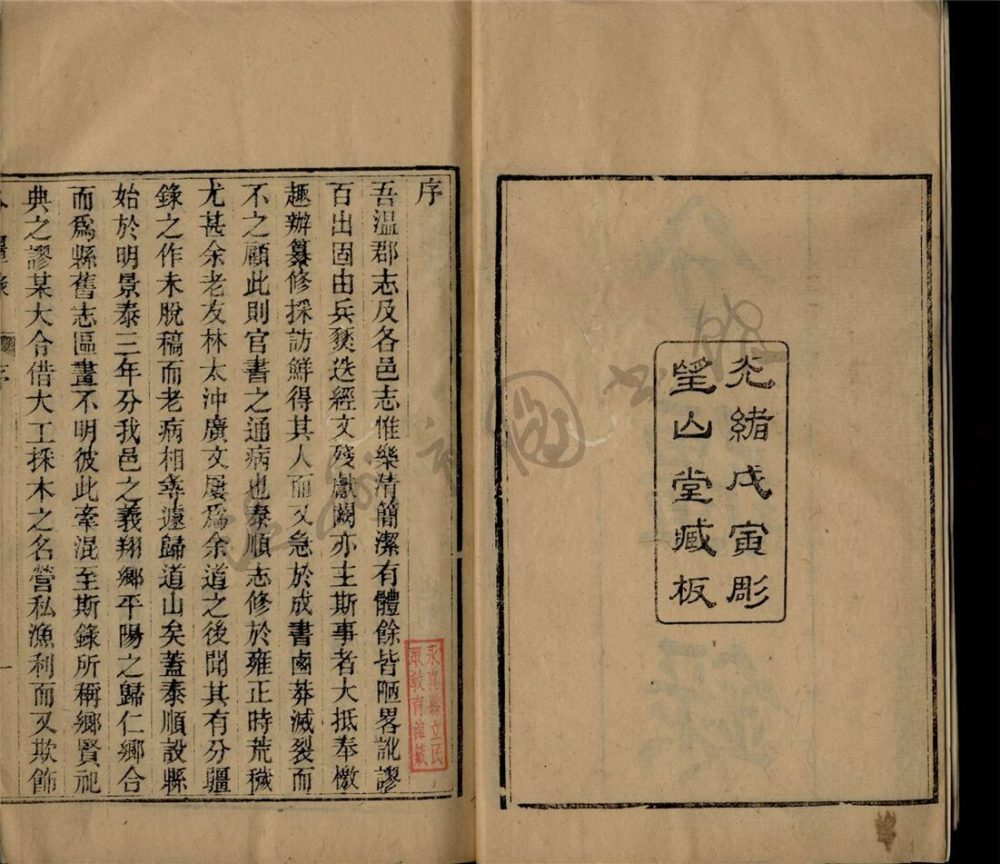 光緒戊寅彫
望山堂臧板
序
吾溫郡志及各邑志惟樂清簡潔有體餘皆陋畧訛謬
百出固由兵燹迭經文殘獻闕亦主斯事者大抵奉檄
趣辦纂修採訪鮮得其人而又急於成書鹵莽滅裂而
不之顧此則官書之通病也泰順志修於雍正時荒穢
尤甚余老友林太沖廣文屢爲余道之後聞其有分疆
錄之作未脫稿而老病相牽遽歸道山矣蓋泰順設縣
始於明景泰三年分我邑之義翔鄉平陽之歸仁鄉合
而爲縣舊志區畫不明彼此牽混至斯錄所稱鄉賢祀
典之謬某大合借大工採木之名營私漁利而又欺飾
永嘉縣立民
眾教育館藏